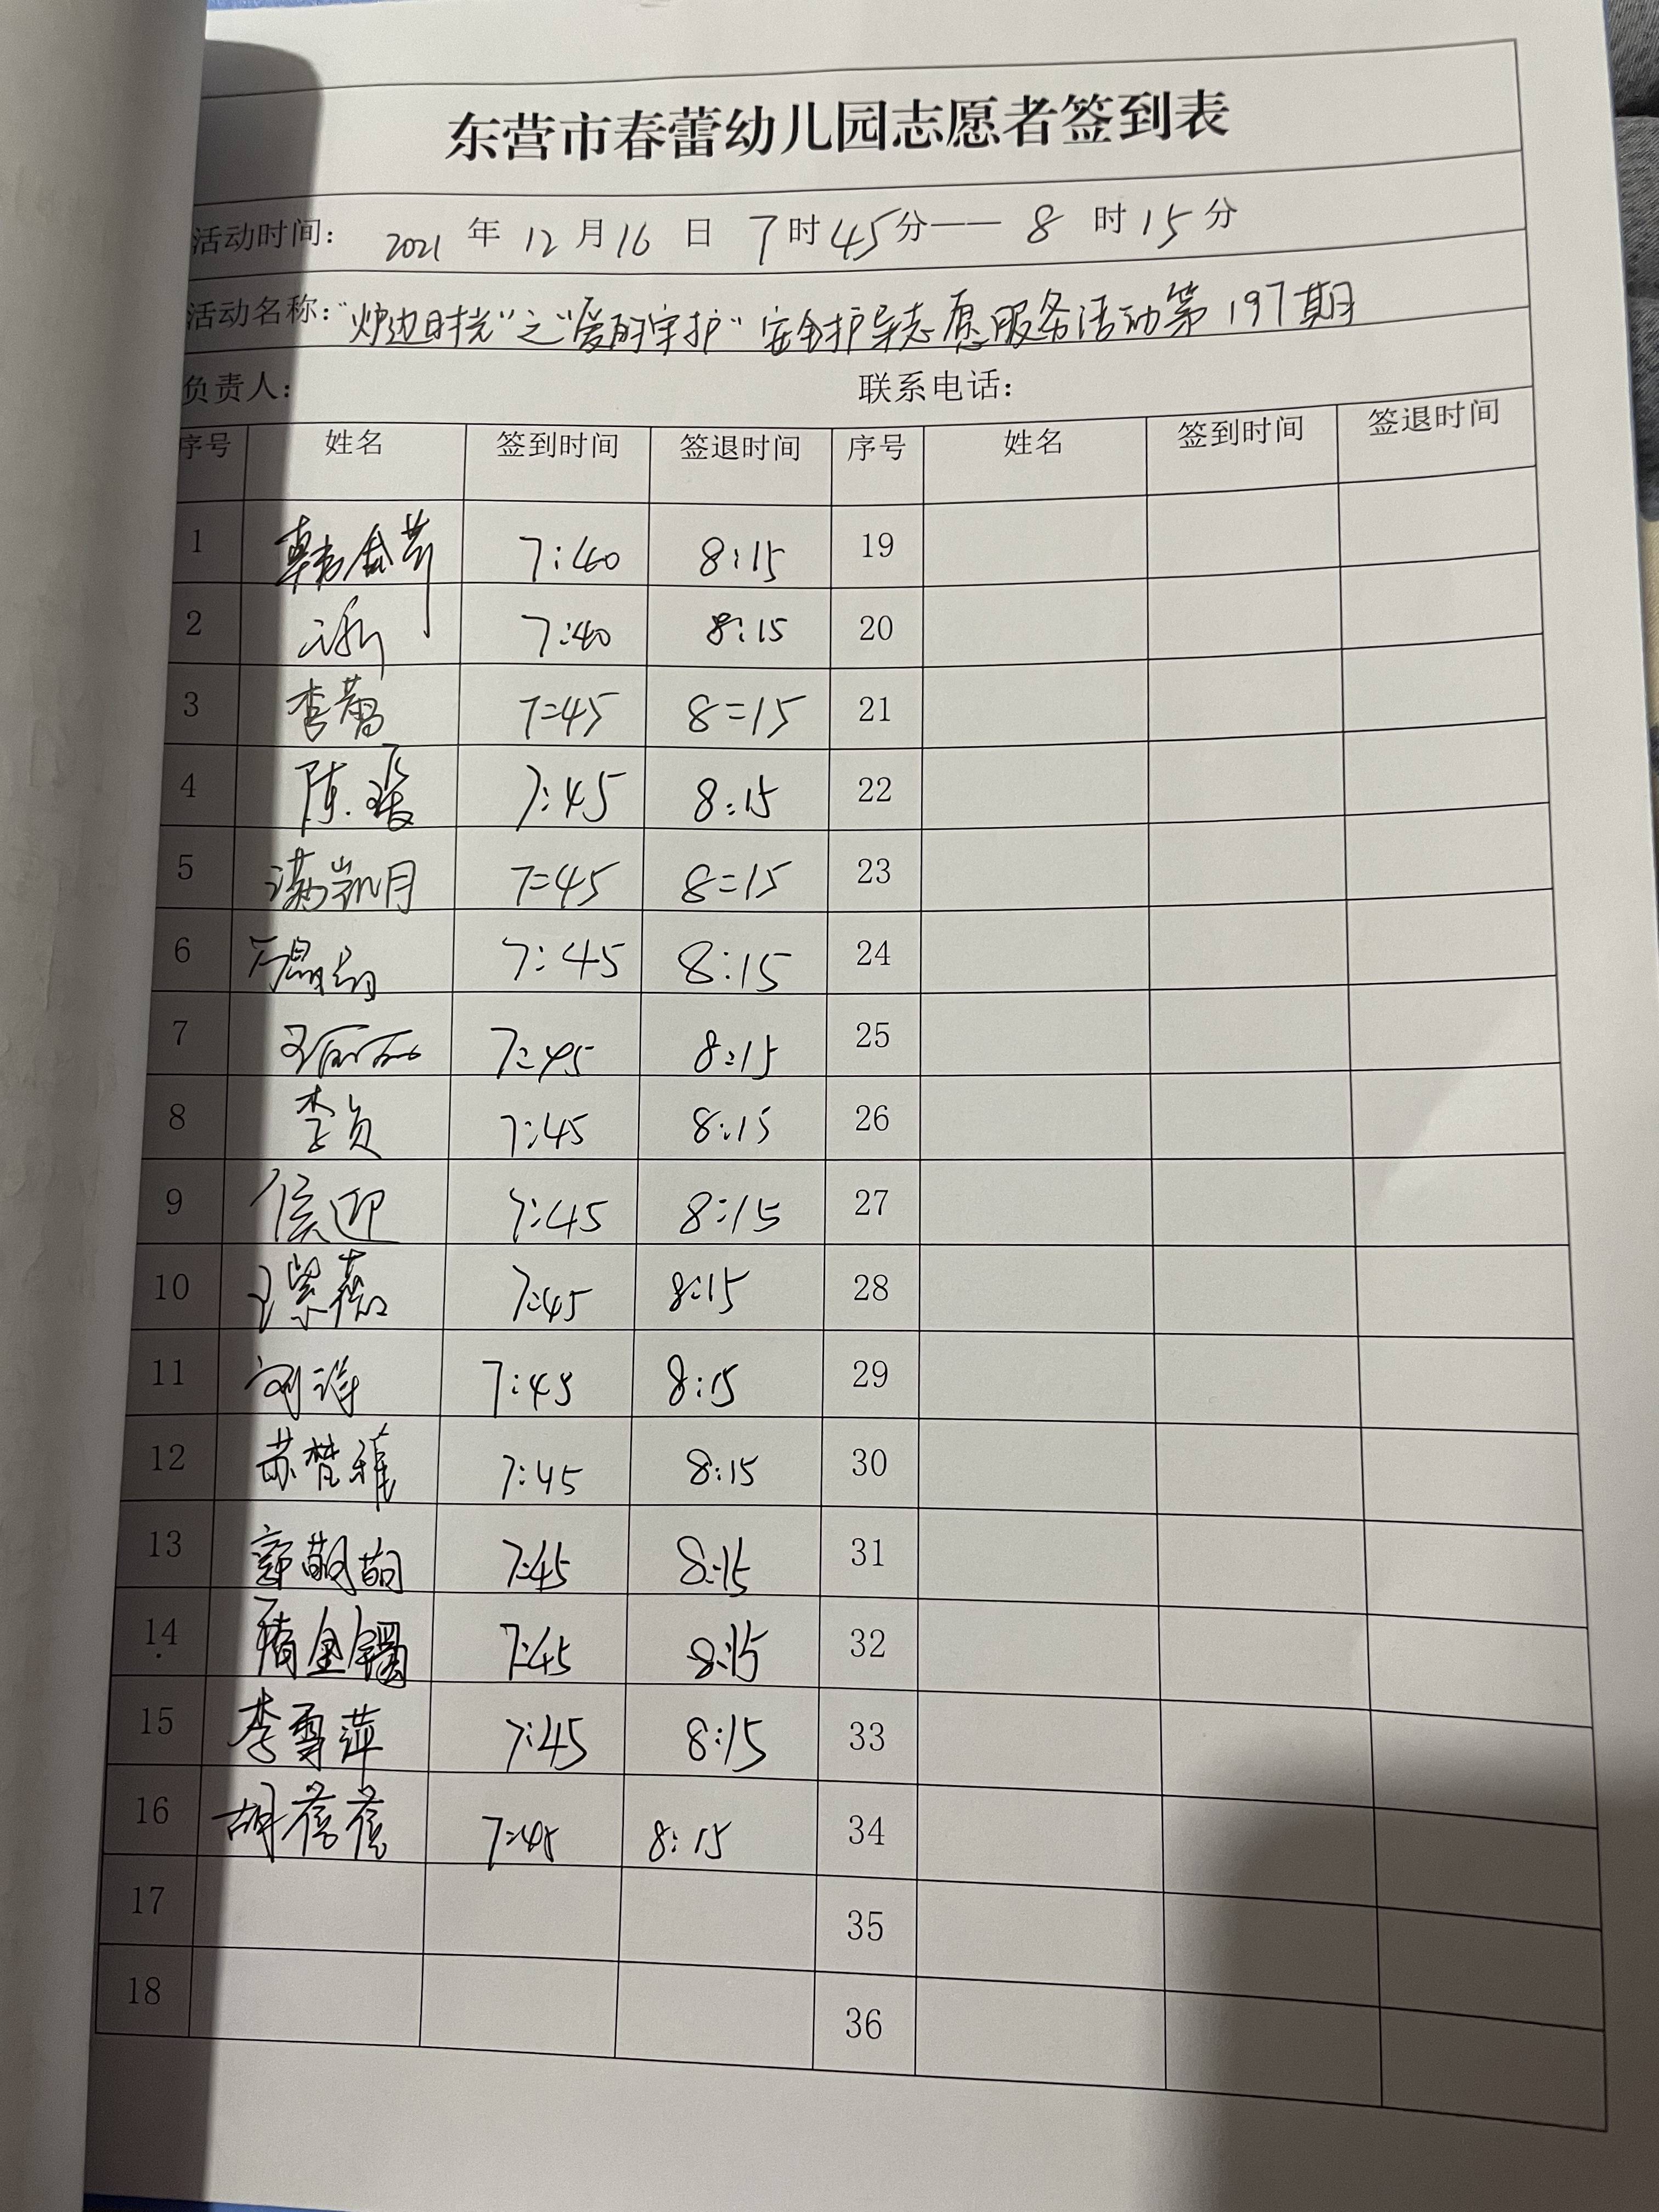 东营市春蕾幼儿园志愿者签到表
活动时间： 2021 年 12 月 16 日 7 时 45 分—— 8 时 15 分
活动名称："炉边时光"之"爱的守护"安全护导志愿服务活动第197期
负责人： 联系电话：
序号 姓名 签到时间 签退时间 序号 姓名 签到时间 签退时间
1 韩 7:40 8:15 19
2 7:40 8:15 20
3 李 7:45 8:15 21
4 陈瑗 7:45 8:15 22
5 满凯月 7:45 8:15 23
6 7:45 8:15 24
7 7:45 8:15 25
8 李贞 7:45 8:15 26
9 侯迎 7:45 8:15 27
10 王紫薇 7:45 8:15 28
11 刘洋 7:45 8:15 29
12 苏梦雅 7:45 8:15 30
13 7:45 8:15 31
14 隋金镯 7:45 8:15 32
15 李雪萍 7:45 8:15 33
16 胡蓓蓓 7:45 8:15 34
17 35
18 36